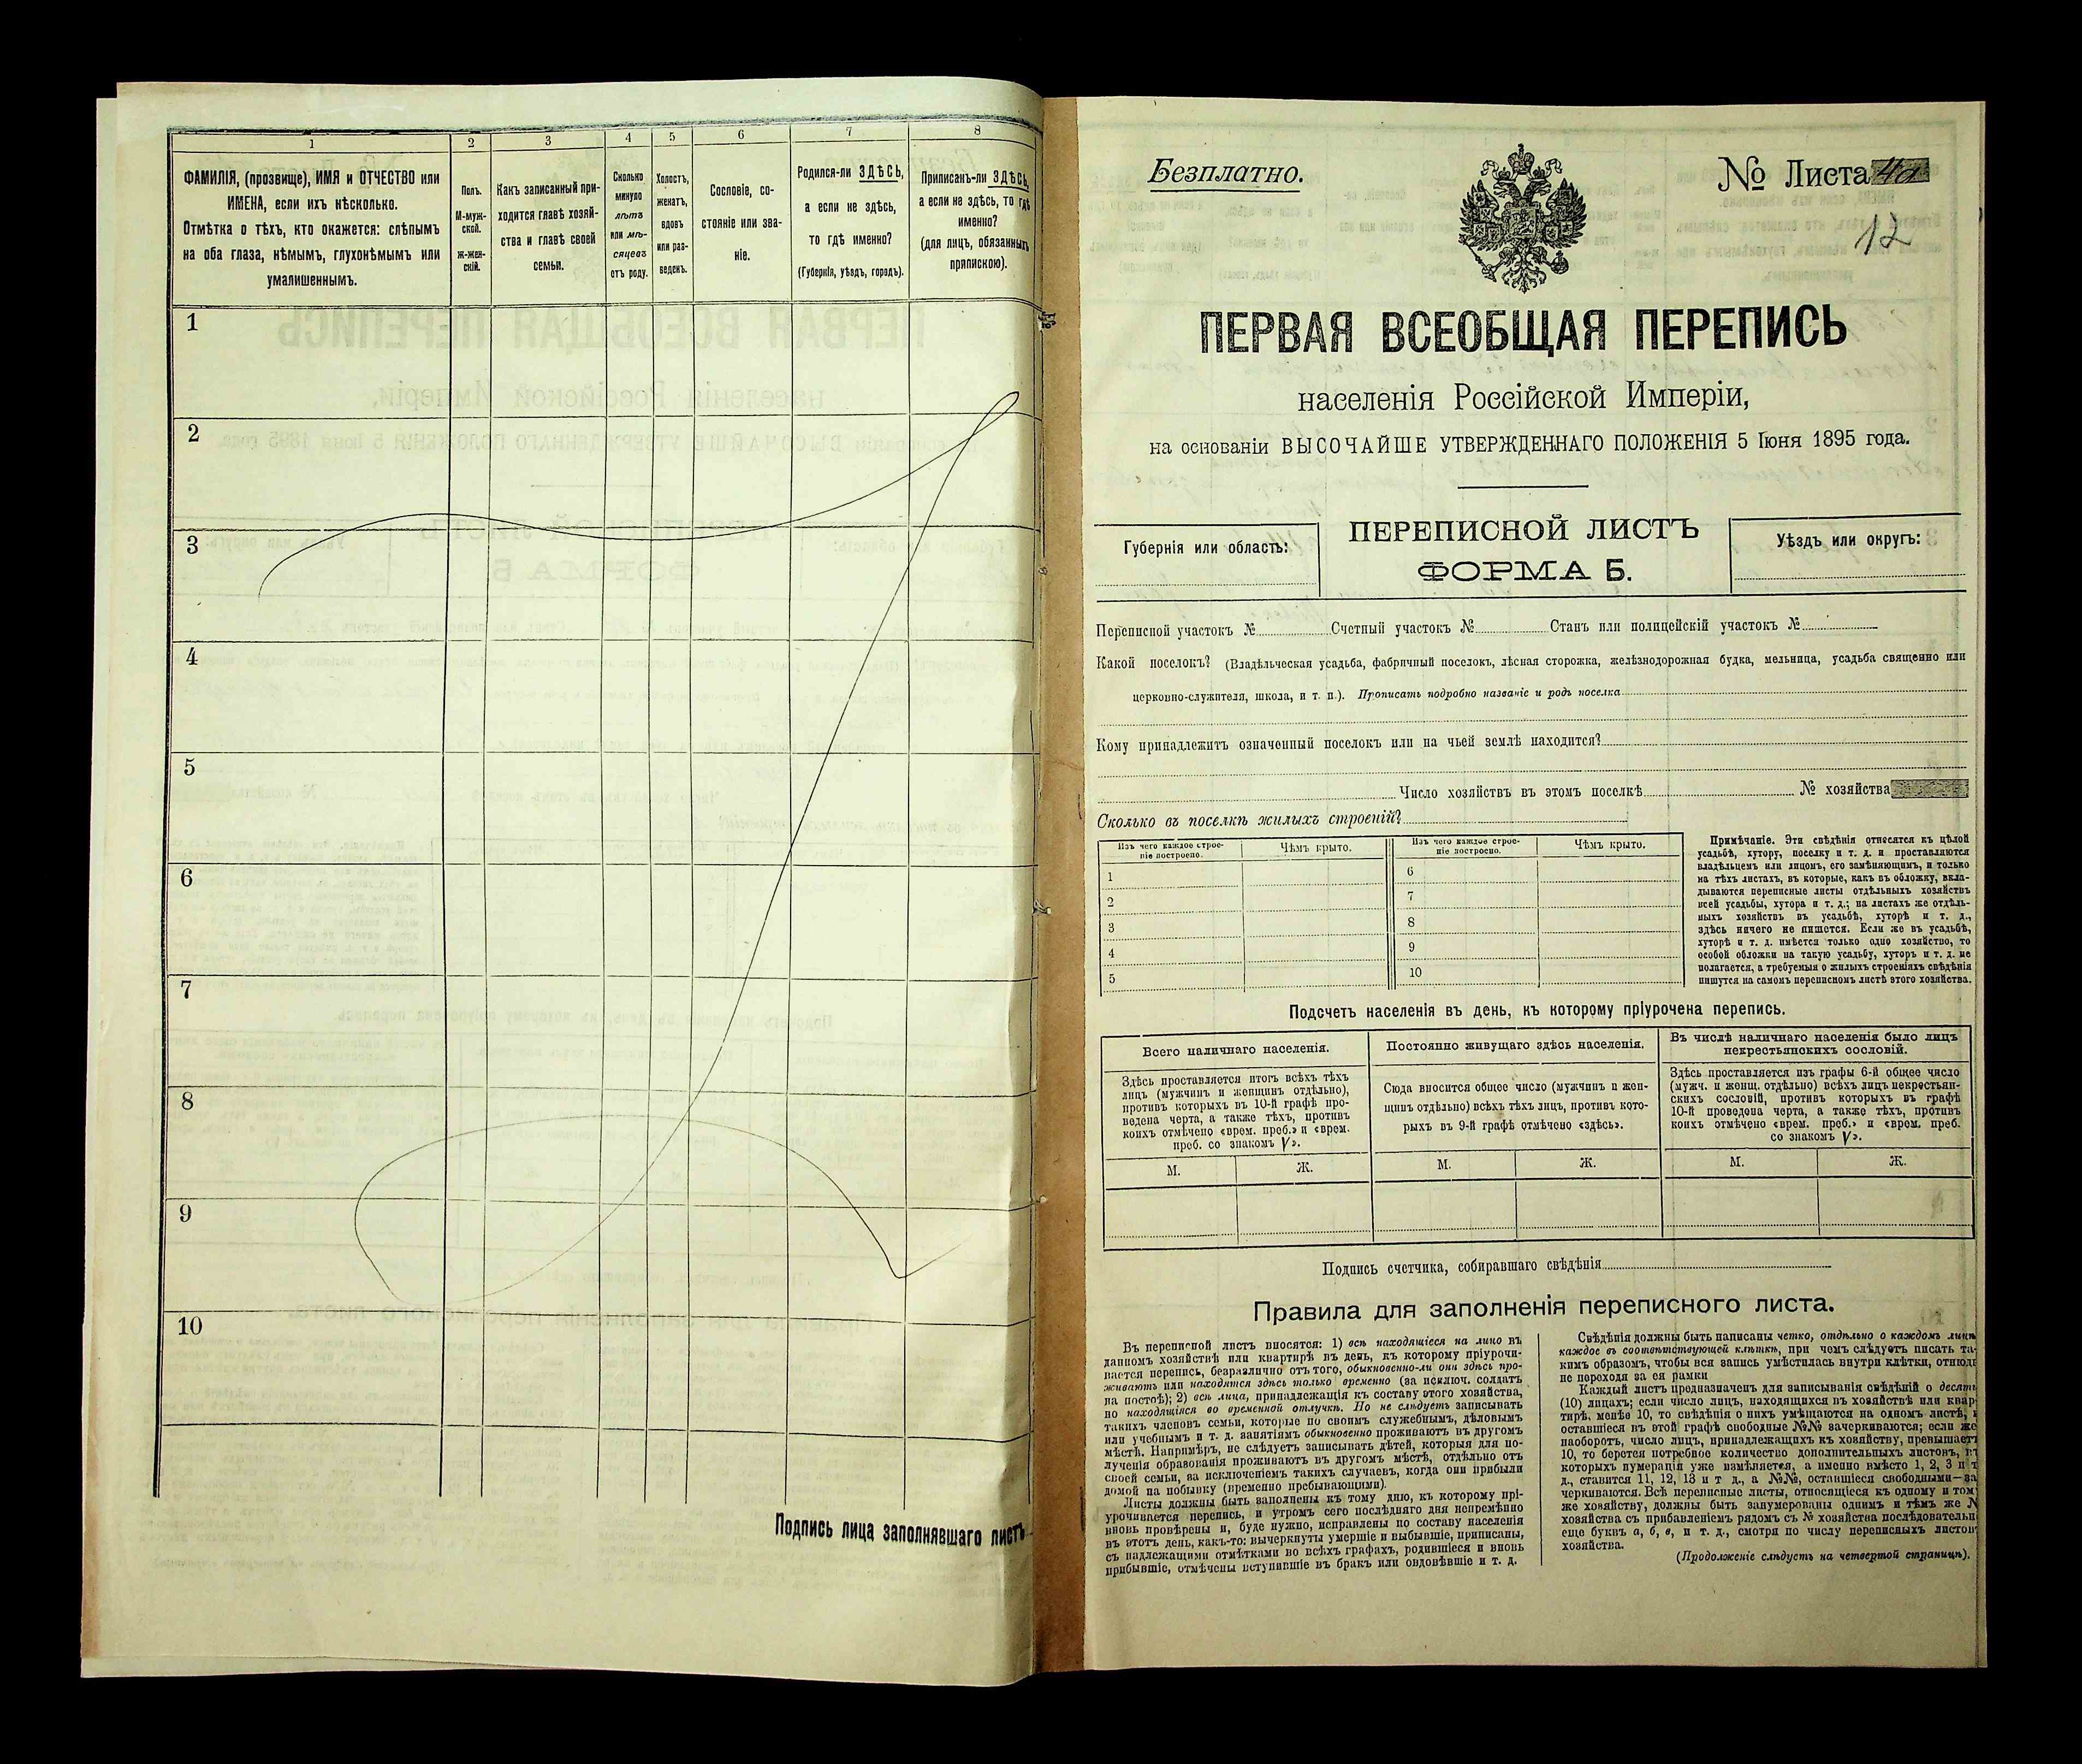 1
2
3
4
5
6
7
8
ФАМИЛІЯ, (прозвище), ИМЯ и ОТЧЕСТВО или
ИМЕНА, если ихъ нѣсколько.
Отмѣтка о тѣхъ, кто окажется: слѣпымъ
на оба глаза, нѣмымъ, глухонѣмымъ или
умалишеннымъ.
Полъ.
М-муж-
ской.
Ж-жен-
скій.
Какъ записанный при-
ходится главѣ хозяй-
ства и главѣ своей
семьи.
Сколько
минуло
лѣтъ
или мѣ-
сяцевъ
отъ роду.
Холостъ,
женатъ,
вдовъ
или раз-
веденъ.
Сословіе, со-
стояніе или зва-
ніе.
Родился-ли ЗДѢСЬ,
а если не здѣсь,
то гдѣ именно?
(Губернія, уѣздъ, городъ).
Приписанъ-ли ЗДѢСЬ,
а если не здѣсь, то гдѣ
именно?
(для лицъ, обязанныхъ
припискою).
1
2
3
4
5
6
7
8
9
10
Подпись лица заполнявшаго листъ
Безплатно.
№ Листа 4а
12
ПЕРВАЯ ВСЕОБЩАЯ ПЕРЕПИСЬ
населенія Россійской Имперіи,
на основаніи ВЫСОЧАЙШЕ УТВЕРЖДЕННАГО ПОЛОЖЕНІЯ 5 Іюня 1895 года.
Губернія или область:
ПЕРЕПИСНОЙ ЛИСТЪ
ФОРМА Б.
Уѣздъ или округъ:
Переписной участокъ № Счетный участокъ № Станъ или полицейскій участокъ №
Какой поселокъ? (Владѣльческая усадьба, фабричный поселокъ, лѣсная сторожка, желѣзнодорожная будка, мельница, усадьба священно или
церковно-служителя, школа, и т. п.). Прописать подробно названіе и родъ поселка
Кому принадлежитъ означенный поселокъ или на чьей землѣ находится?
Число хозяйствъ въ этомъ поселкѣ № хозяйства
Сколько въ поселкѣ жилыхъ строеній?
Изъ чего каждое строе-
ніе построено.
Чѣмъ крыто.
Изъ чего каждое строе-
ніе построено.
Чѣмъ крыто.
1
2
3
4
5
6
7
8
9
10
Примѣчаніе. Эти свѣдѣнія относятся къ цѣлой
усадьбѣ, хутору, поселку и т. д. и проставляются
владѣльцемъ или лицомъ, его замѣняющимъ, и только
на тѣхъ листахъ, въ которые, какъ въ обложку, вкла-
дываются переписные листы отдѣльныхъ хозяйствъ
всей усадьбы, хутора и т. д.; на листахъ же отдѣль-
ныхъ хозяйствъ въ усадьбѣ, хуторѣ и т. д.,
здѣсь ничего не пишется. Если же въ усадьбѣ,
хуторѣ и т. д. имѣется только одно хозяйство, то
особой обложки на такую усадьбу, хуторъ и т. д. не
полагается, а требуемыя о жилыхъ строеніяхъ свѣдѣнія
пишутся на самомъ переписномъ листѣ этого хозяйства.
Подсчетъ населенія въ день, къ которому пріурочена перепись.
Всего наличнаго населенія.
Здѣсь проставляется итогъ всѣхъ тѣхъ
лицъ (мужчинъ и женщинъ отдѣльно),
противъ которыхъ въ 10-й графѣ про-
ведена черта, а также тѣхъ, противъ
коихъ отмѣчено «врем. преб.» и «врем.
преб. со знакомъ V».
Постоянно живущаго здѣсь населенія.
Сюда вносится общее число (мужчинъ и жен-
щинъ отдѣльно) всѣхъ тѣхъ лицъ, противъ кото-
рыхъ въ 9-й графѣ отмѣчено «здѣсь».
Въ числѣ наличнаго населенія было лицъ
некрестьянскихъ сословій.
Здѣсь проставляется изъ графы 6-й общее число
(мужч. и женщ. отдѣльно) всѣхъ лицъ некрестьян-
скихъ сословій, противъ которыхъ въ графѣ
10-й проведена черта, а также тѣхъ, противъ
коихъ отмѣчено «врем. преб.» и «врем. преб.
со знакомъ V».
М.
Ж.
М.
Ж.
М.
Ж.
Подпись счетчика, собиравшаго свѣдѣнія
Правила для заполненія переписного листа.
Въ переписной листъ вносятся: 1) всѣ находящіеся на лицо въ
данномъ хозяйствѣ или квартирѣ въ день, къ которому пріурочи-
вается перепись, безразлично отъ того, обыкновенно-ли они здѣсь про-
живаютъ или находятся здѣсь только временно (за исключ. солдатъ
на постоѣ); 2) всѣ лица, принадлежащія къ составу этого хозяйства,
но находящіяся во временной отлучкѣ. Но не слѣдуетъ записывать
такихъ членовъ семьи, которые по своимъ служебнымъ, дѣловымъ
или учебнымъ и т. д. занятіямъ обыкновенно проживаютъ въ другомъ
мѣстѣ. Напримѣръ, не слѣдуетъ записывать дѣтей, которыя для по-
лученія образованія проживаютъ въ другомъ мѣстѣ, отдѣльно отъ
своей семьи, за исключеніемъ такихъ случаевъ, когда они прибыли
домой на побывку (временно пребывающими).
Листы должны быть заполнены къ тому дню, къ которому прі-
урочивается перепись, и утромъ сего послѣдняго дня непремѣнно
вновь провѣрены и, буде нужно, исправлены по составу населенія
въ этотъ день, какъ-то: вычеркнуты умершіе и выбывшіе, приписаны,
съ надлежащими отмѣтками во всѣхъ графахъ, родившіеся и вновь
прибывшіе, отмѣчены вступившіе въ бракъ или овдовѣвшіе и т. д.
Свѣдѣнія должны быть написаны четко, отдѣльно о каждомъ лицѣ
каждое въ соотвѣтствующей клѣткѣ, при чемъ слѣдуетъ писать та-
кимъ образомъ, чтобы вся запись умѣстилась внутри клѣтки, отнюдь
не переходя за ея рамки
Каждый листъ предназначенъ для записыванія свѣдѣній о десяти
(10) лицахъ; если число лицъ, находящихся въ хозяйствѣ или квар-
тирѣ, менѣе 10, то свѣдѣнія о нихъ умѣщаются на одномъ листѣ,
оставшіеся въ этой графѣ свободные №№ зачеркиваются; если же
наоборотъ, число лицъ, принадлежащихъ къ хозяйству, превышаетъ
10, то берется потребное количество дополнительныхъ листовъ,
которыхъ нумерація уже измѣняется, а именно вмѣсто 1, 2, 3 и т
д., ставится 11, 12, 13 и т д., а №№, оставшіеся свободными—за
черкиваются. Всѣ переписные листы, относящіеся къ одному и тому
же хозяйству, должны быть занумерованы однимъ и тѣмъ же №
хозяйства съ прибавленіемъ рядомъ съ № хозяйства послѣдовательн
еще буквъ а, б, в, и т. д., смотря по числу переписныхъ листовъ
хозяйства.
(Продолженіе слѣдуетъ на четвертой страницѣ).